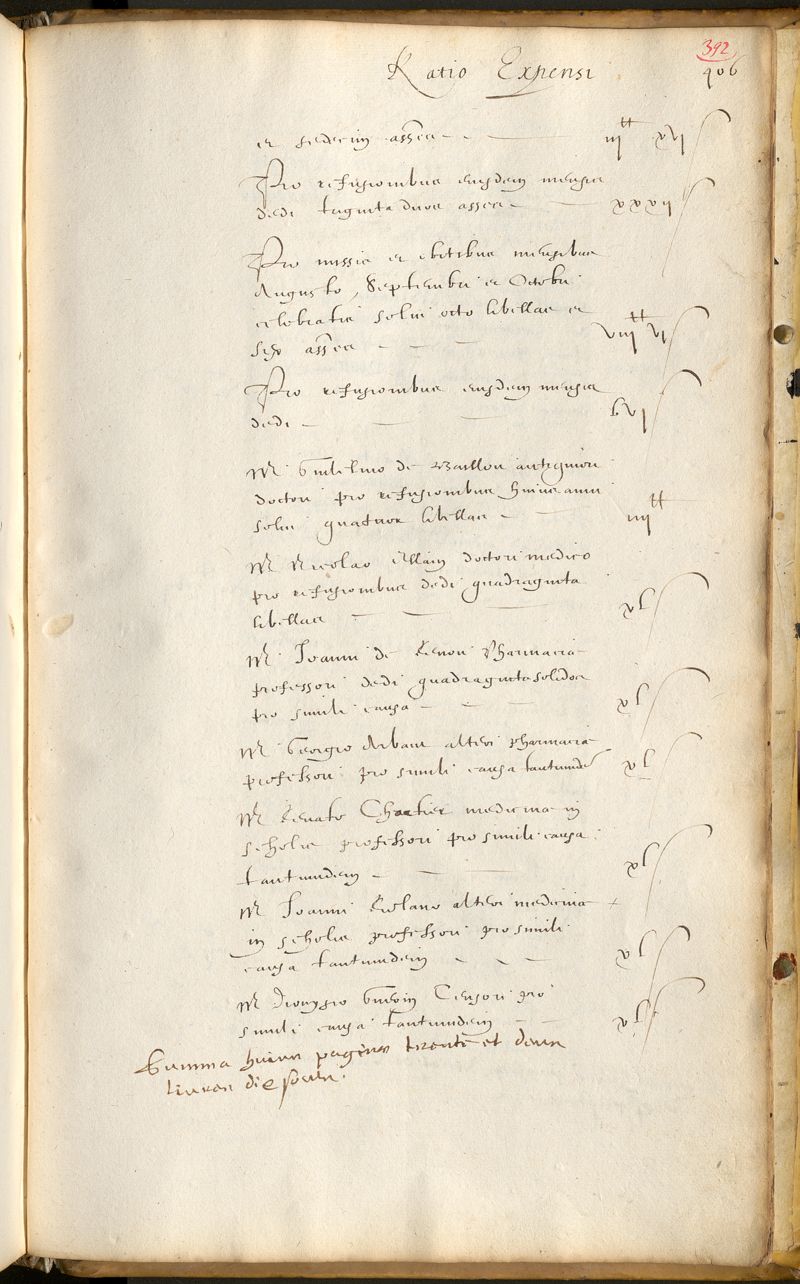 392
Ratio Expensi 406
et sedecim asses iii ₶ xvj ß
Pro refusionibus eiusdem mensis
dedi triginta duos asses xxxij ß
Pro missis et obitibus mensibus
Augusto, Septembri et Octobri
celebratis solui octo libellas et
sex asses viij ₶ vj ß
Pro refusionibus eiusdem mensis
dedi lvj ß
M. Guilielmo de Baillou antiquiori
doctori pro refusionibus huius anni
solui quatuor libellas iiij ₶
M. Nicolao Ellain doctori medico
pro refusionibus dedi quadraginta
libellas xl ß
M. Joanni de Renou Pharmaciæ
professori dedi quadraginta solidos
pro simili causa xl ß
M. Georgio Arbaut alteri pharmaciæ
professori pro simili causa tantundem xl ß
M. Renato Chartier medicinæ in
scholis professori pro simili causa
tantumdem xl ß
M. Joanni Riolano alteri medicinæ
in scholis professori pro simili
causa tantumdem xl ß
M. Dionysio Guerin Censori pro
simili causa tantumdem xl ß
Summa huius paginæ trente et deux
livres dix soulz.